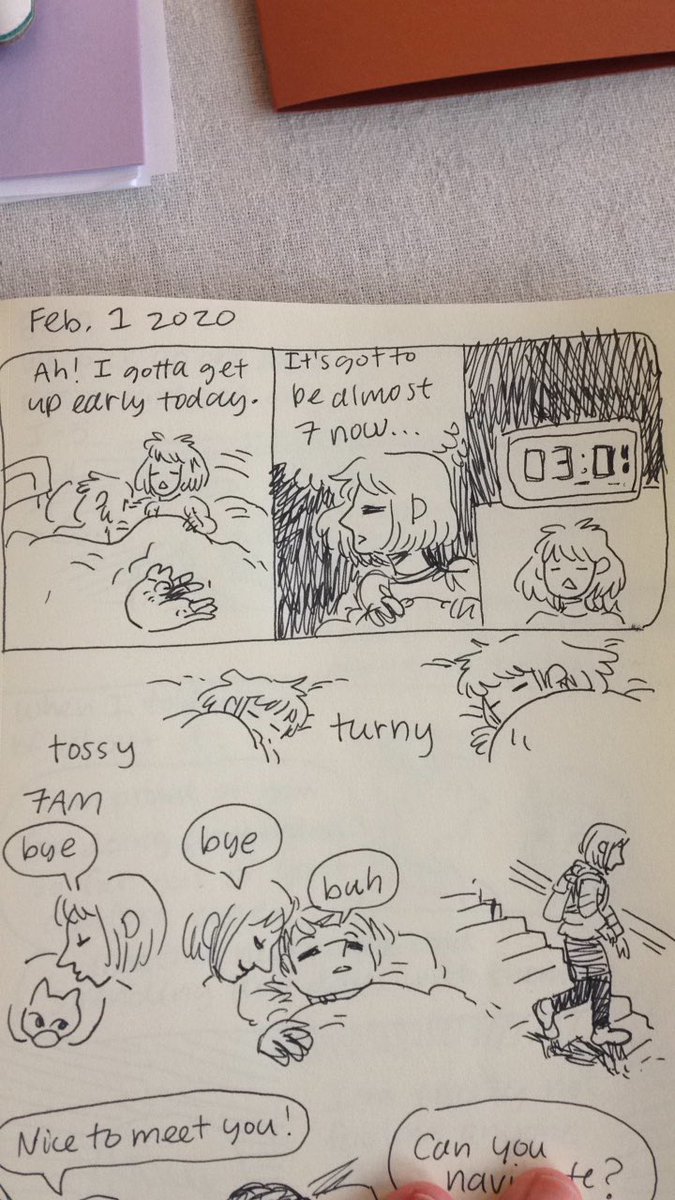 Feb. 1 2020
Ah! I gotta get
up early today.
It's got to
be almost
7 now...
03:01
tossy
turny
7AM
bye
bye
buh
Nice to meet you!
Can you